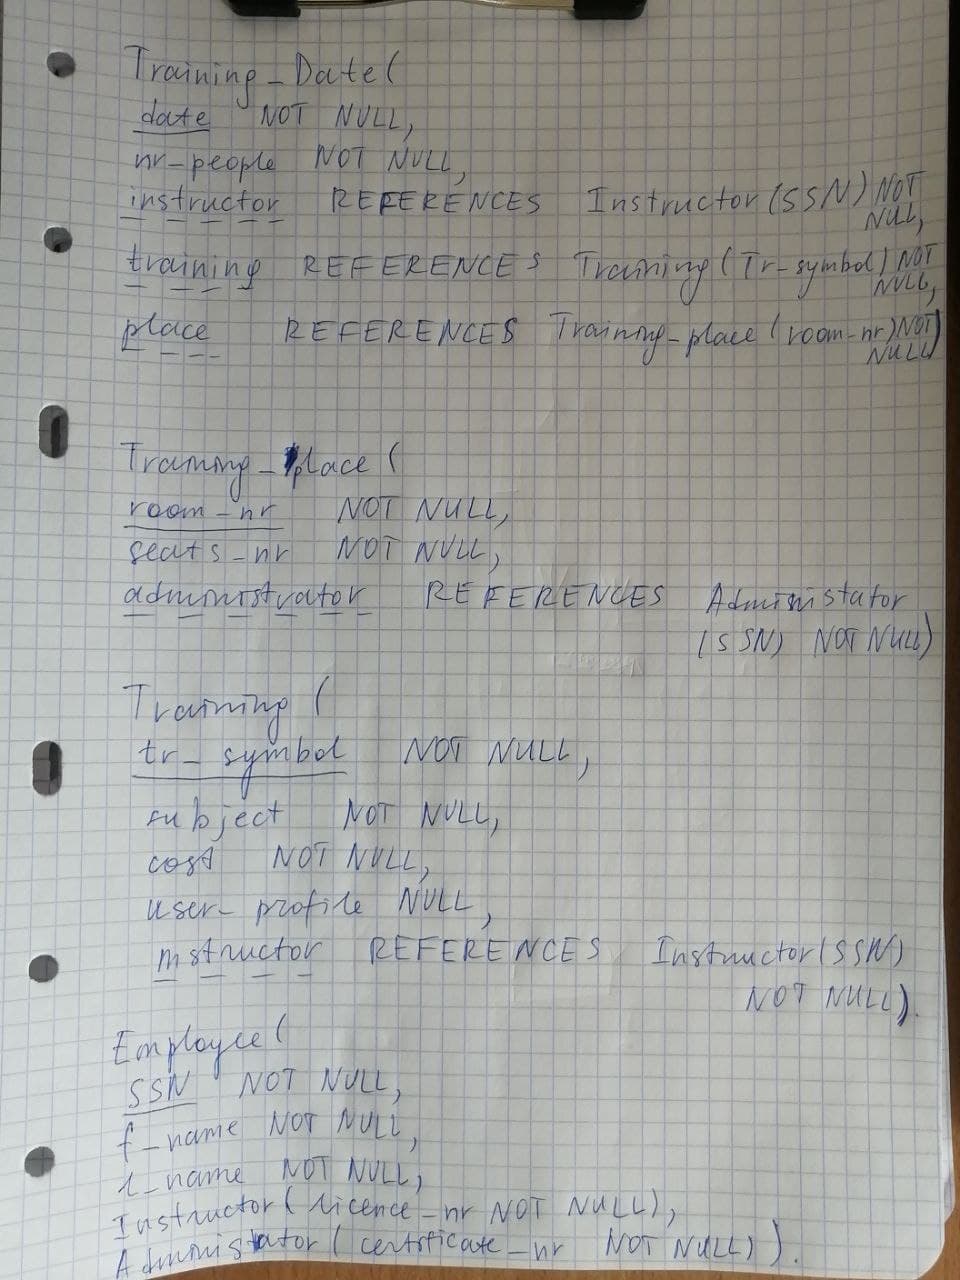 Training_Date(
date NOT NULL,
nr-people NOT NULL,
instructor REFERENCES Instructor(SSN) NOT
NULL,
training REFERENCES Training(Tr-symbol) NOT
NULL,
place REFERENCES Training_place(room-nr) NOT
NULL)
Training_place(
room_nr NOT NULL,
seats_nr NOT NULL,
administrator REFERENCES Administator
(SSN) NOT NULL)
Training(
tr_symbol NOT NULL,
subject NOT NULL,
cost NOT NULL,
user_profile NULL,
instructor REFERENCES Instructor(SSN)
NOT NULL).
Employee(
SSN NOT NULL,
f_name NOT NULL,
l_name NOT NULL,
Instructor(licence_nr NOT NULL),
Administator(certificate_nr NOT NULL)).